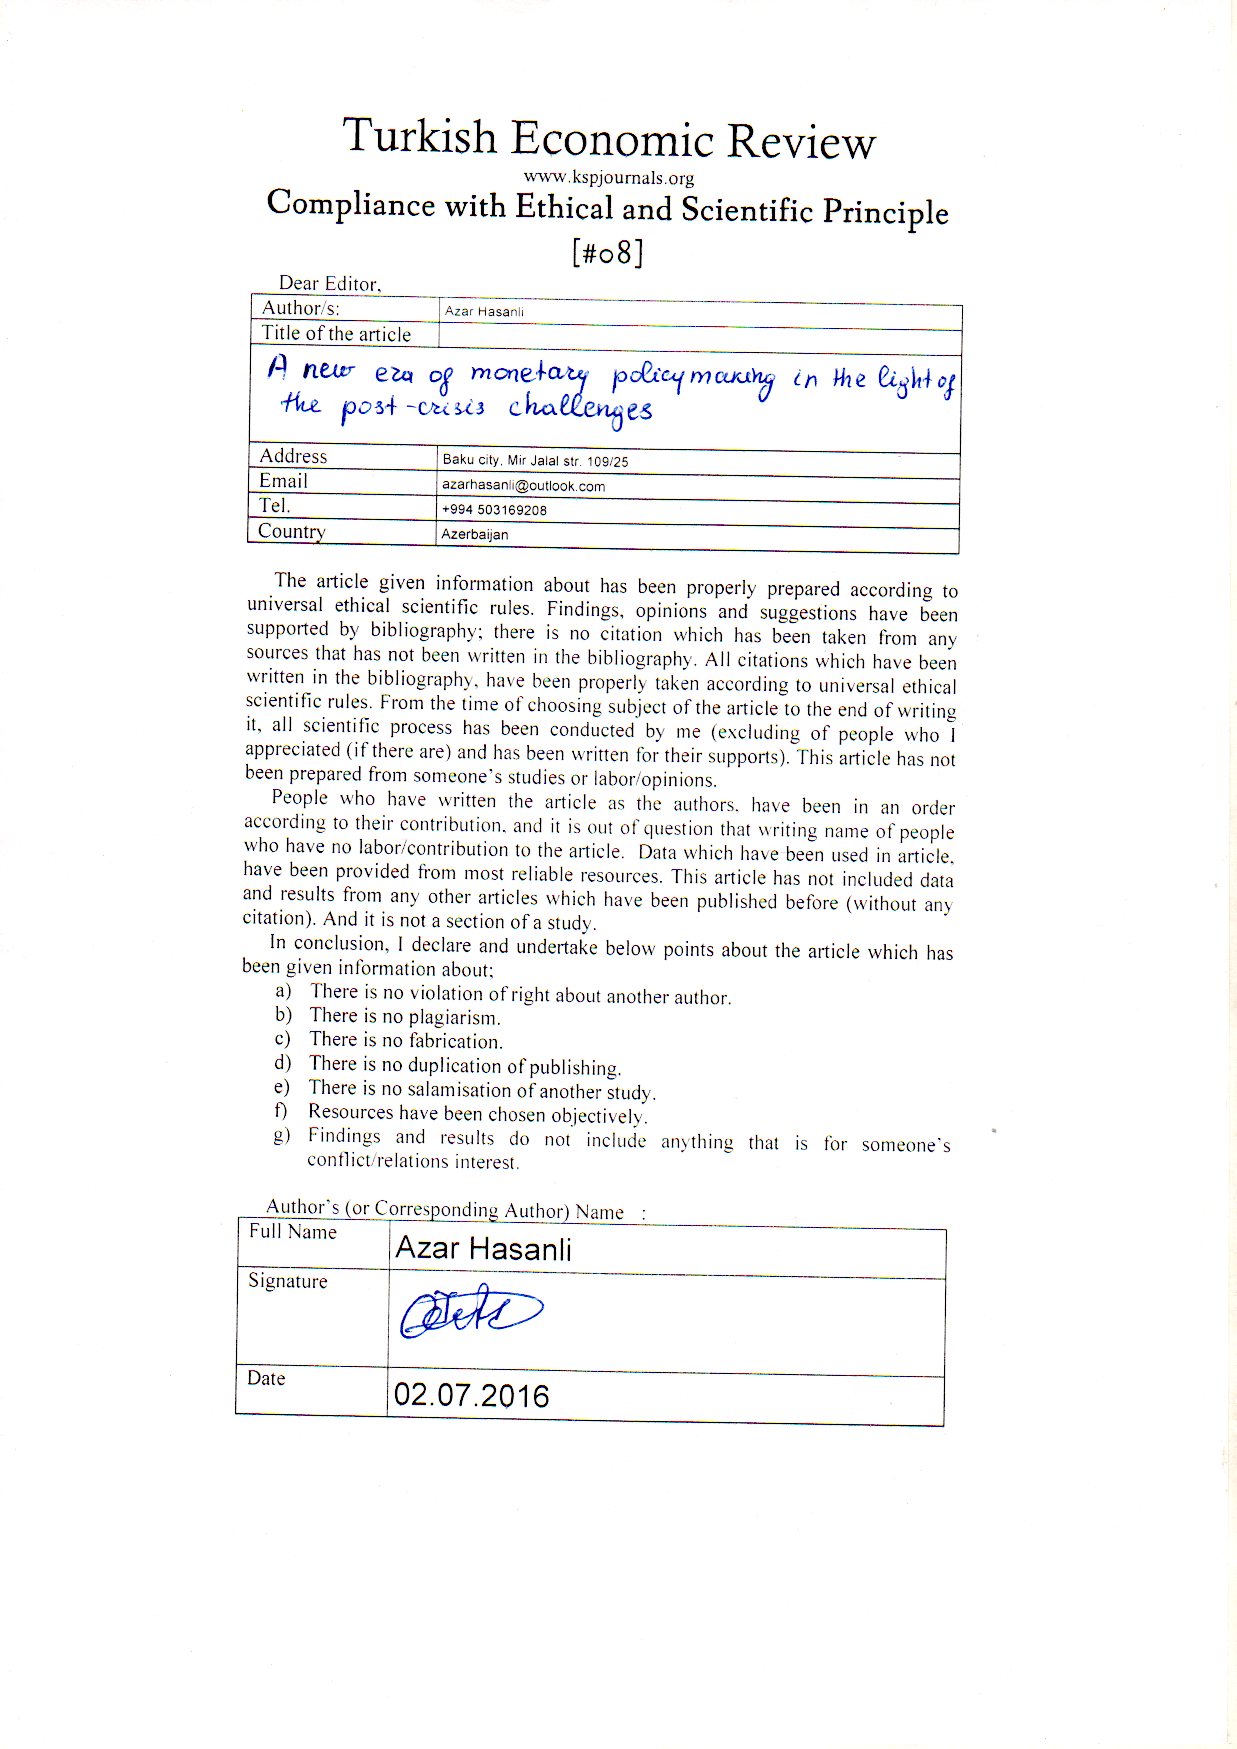 Turkish Economic Review
www.kspjournals.org
Compliance with Ethical and Scientific Principle
[#08]
Dear Editor,
Author/s: Azar Hasanli
Title of the article
A new era of monetary policymaking in the light of
the post-crisis challenges
Address Baku city, Mir Jalal str. 109/25
Email azarhasanli@outlook.com
Tel. +994 503169208
Country Azerbaijan
The article given information about has been properly prepared according to
universal ethical scientific rules. Findings, opinions and suggestions have been
supported by bibliography; there is no citation which has been taken from any
sources that has not been written in the bibliography. All citations which have been
written in the bibliography, have been properly taken according to universal ethical
scientific rules. From the time of choosing subject of the article to the end of writing
it, all scientific process has been conducted by me (excluding of people who I
appreciated (if there are) and has been written for their supports). This article has not
been prepared from someone's studies or labor/opinions.
People who have written the article as the authors, have been in an order
according to their contribution, and it is out of question that writing name of people
who have no labor/contribution to the article. Data which have been used in article,
have been provided from most reliable resources. This article has not included data
and results from any other articles which have been published before (without any
citation). And it is not a section of a study.
In conclusion, I declare and undertake below points about the article which has
been given information about;
a) There is no violation of right about another author.
b) There is no plagiarism.
c) There is no fabrication.
d) There is no duplication of publishing.
e) There is no salamisation of another study.
f) Resources have been chosen objectively.
g) Findings and results do not include anything that is for someone's
conflict/relations interest.
Author's (or Corresponding Author) Name :
Full Name Azar Hasanli
Signature
Date 02.07.2016